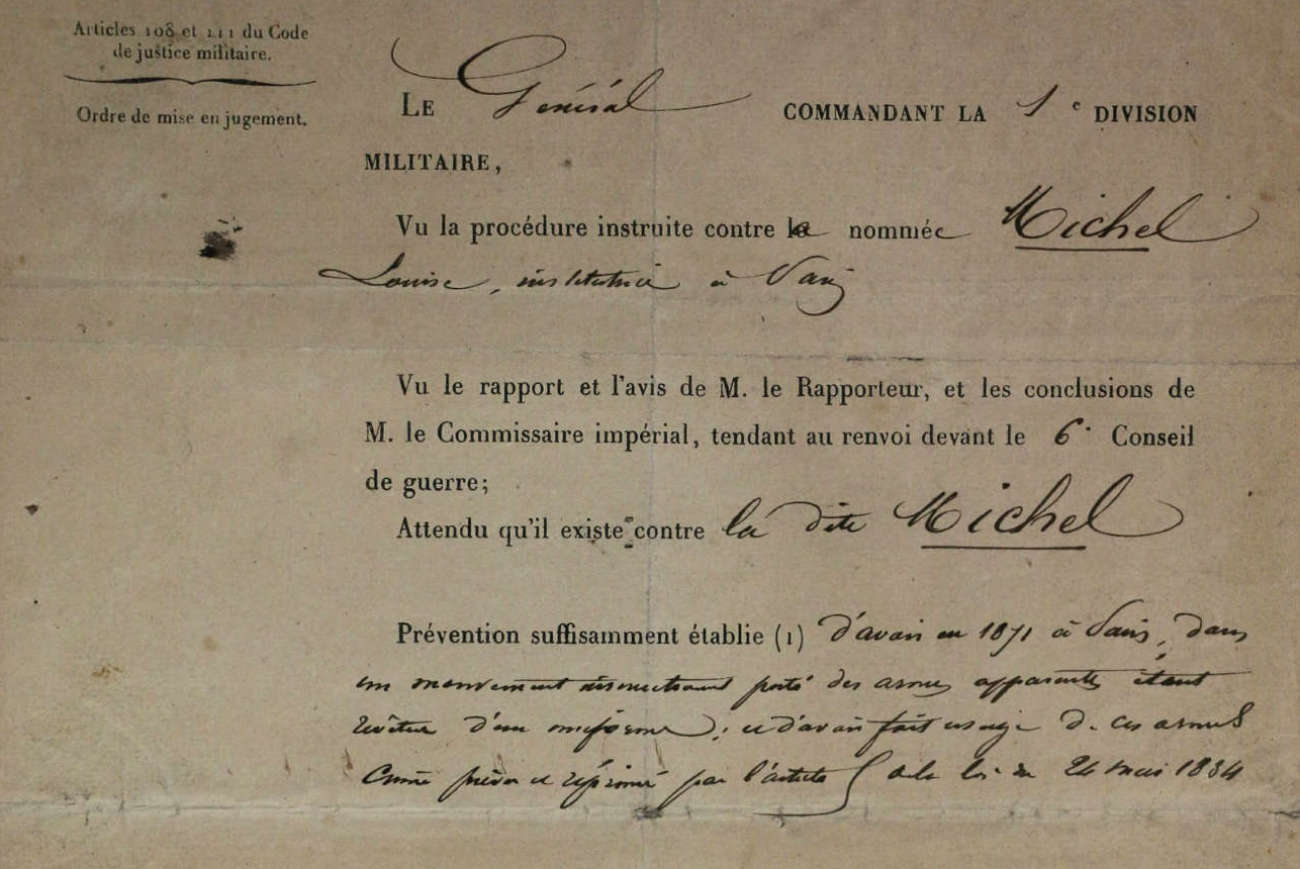 Articles 108 et 111 du Code
de justice militaire.
Ordre de mise en jugement.
LE Général COMMANDANT LA 1e DIVISION
MILITAIRE,
Vu la procédure instruite contre la nommée Michel
Louise, institutrice à Paris
Vu le rapport et l'avis de M. le Rapporteur, et les conclusions de
M. le Commissaire impérial, tendant au renvoi devant le 6e Conseil
de guerre;
Attendu qu'il existe contre la dite Michel
Prévention suffisamment établie (1) d'avoir en 1871 à Paris, dans
un mouvement insurrectionnel porté des armes apparentes étant
vêtue d'un uniforme, et d'avoir fait usage de ces armes
Crime prévu et réprimé par l'article 5 de la loi du 24 mai 1834